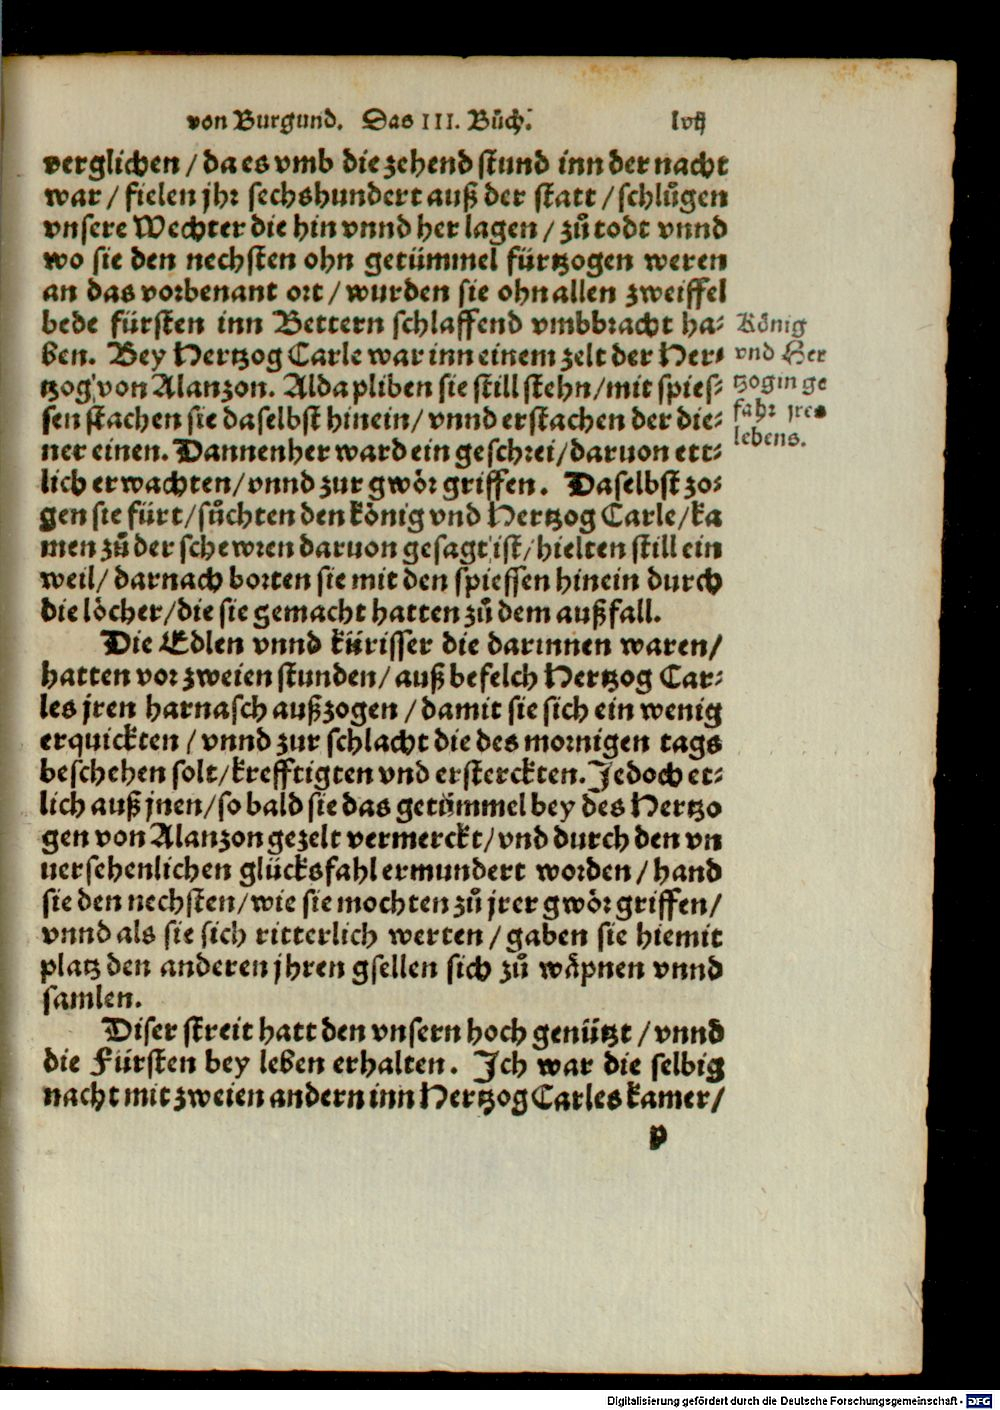 von Burgund. Das III. Bůch. lvij
verglichen / da es vmb die zehend stund inn der nacht
war / fielen jhr sechshundert auß der statt / schlůgen
vnsere Wechter die hin vnnd her lagen / zů todt vnnd
wo sie den nechsten ohn getümmel fürtzogen weren
an das vorbenant ort / wurden sie ohn allen zweiffel
bede fürsten inn Bettern schlaffend vmbbracht ha⸗
ben. Bey Hertzog Carle war inn einem zelt der Her⸗
tzog von Alanzon. Alda pliben sie still stehn / mit spies⸗
sen stachen sie daselbst hinein / vnnd erstachen der die⸗
ner einen. Dannenher ward ein geschrei / daruon ett⸗
lich erwachten / vnnd zur gwör griffen. Daselbst zo⸗
gen sie fürt / sůchten den könig vnd Hertzog Carle / ka
men zů der schewren daruon gesagt ist / hielten still ein
weil / darnach borten sie mit den spiessen hinein durch
die löcher / die sie gemacht hatten zů dem außfall.
Die Edlen vnnd kürisser die darinnen waren /
hatten vor zweien stunden / auß befelch Hertzog Car⸗
les jren harnasch außzogen / damit sie sich ein wenig
erquickten / vnnd zur schlacht die des mornigen tags
beschehen solt / krefftigten vnd ersterckten. Jedoch et⸗
lich auß jnen / so bald sie das getümmel bey des Hertzo
gen von Alanzon gezelt vermerckt / vnd durch den vn
uersehenlichen glücksfahl ermundert worden / hand
sie den nechsten / wie sie mochten zů jrer gwör griffen /
vnnd als sie sich ritterlich werten / gaben sie hiemit
platz den anderen jhren gsellen sich zů wäpnen vnnd
samlen.
Diser streit hatt den vnsern hoch genützt / vnnd
die Fürsten bey leben erhalten. Ich war die selbig
nacht mit zweien andern inn Hertzog Carles kamer /
p
König
vnd Her
tzog in ge
fahr jres
lebens.
Digitalisierung gefördert durch die Deutsche Forschungsgemeinschaft - DFG